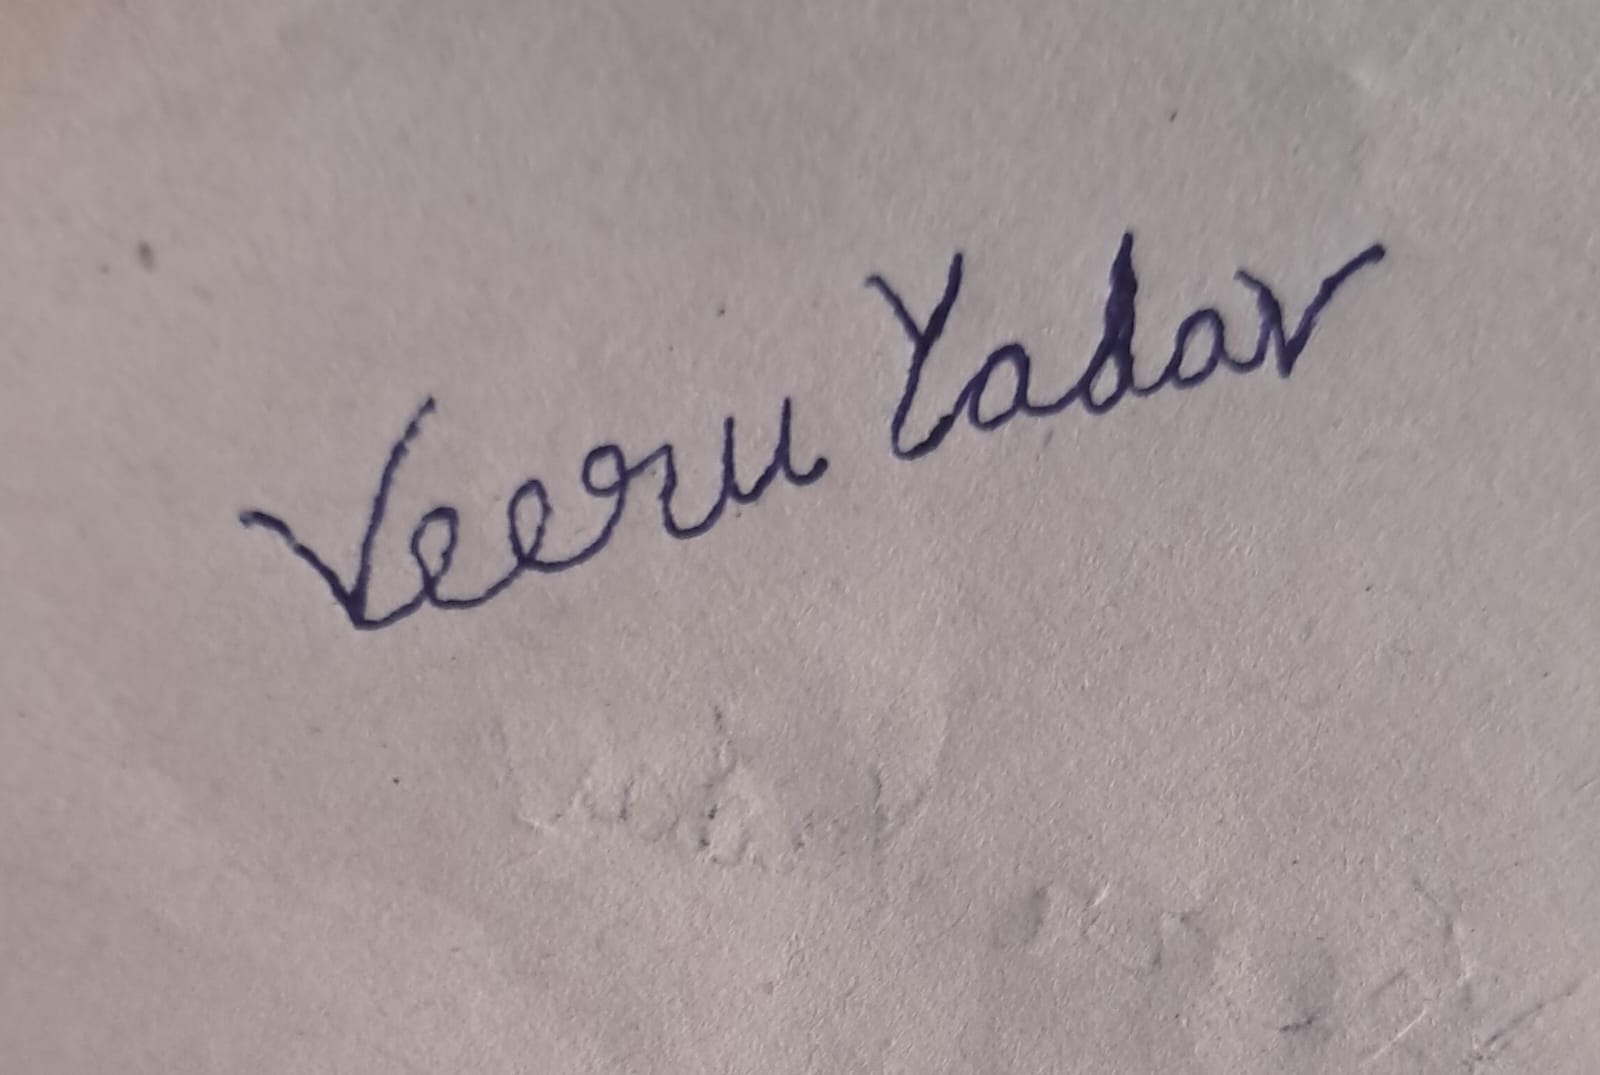 Veeru Yadav